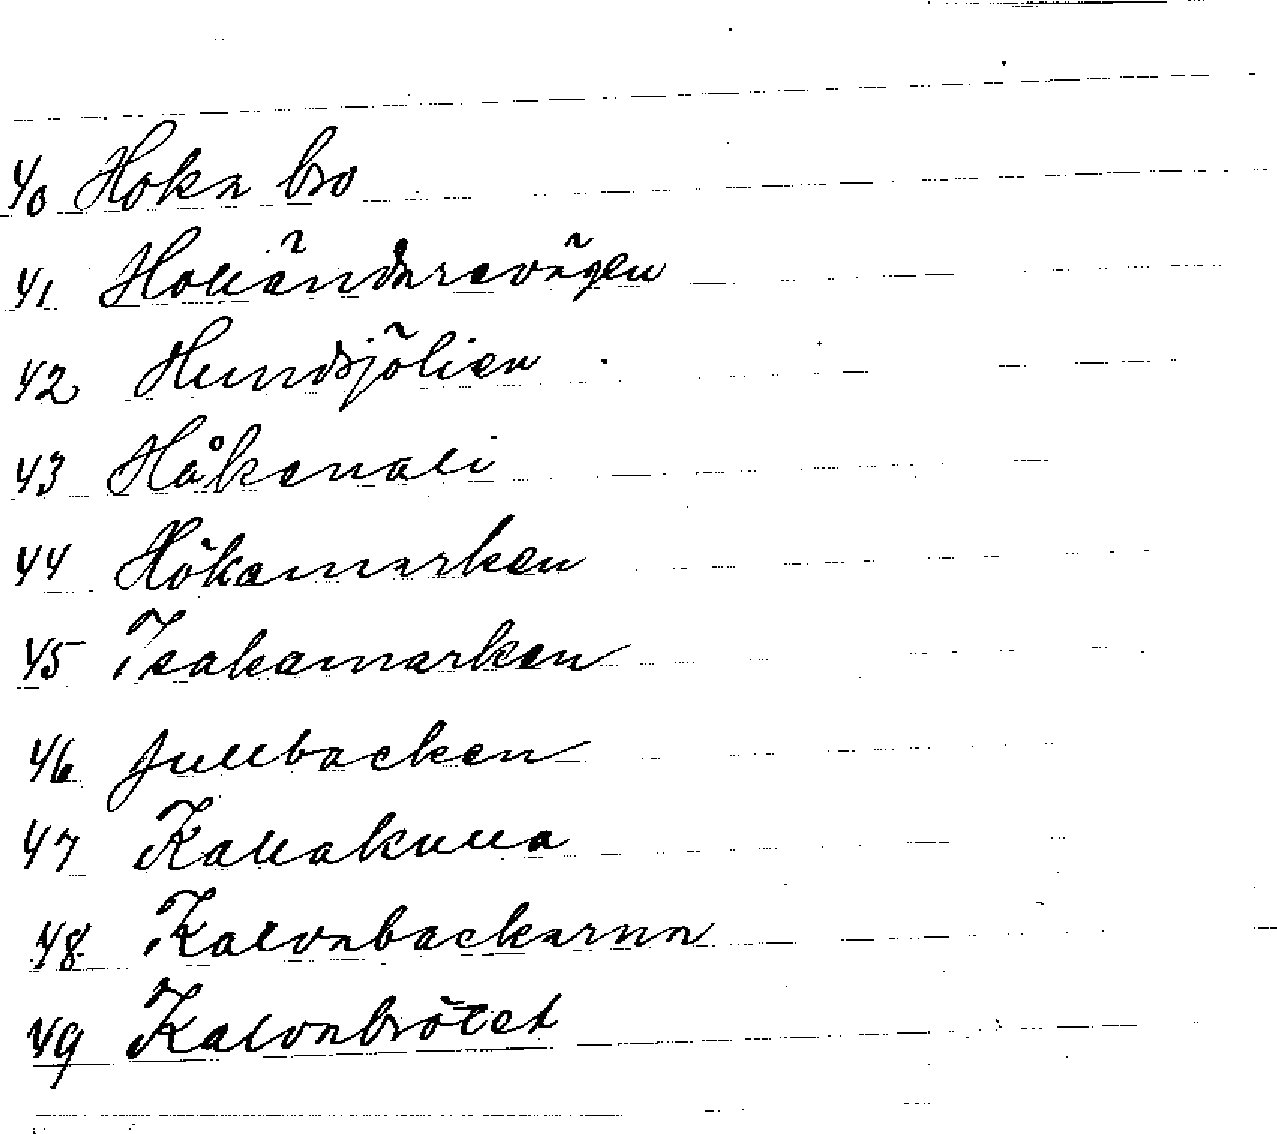 40 Hoka bro
41 Holländarevägen
42 Hundsjölien
43 Håkanali
44 Hökamarken
45 Isakamarken
46 Jullbacken
47 Kallakulla
48 Kalvabackarna
49 Kalvabrötet